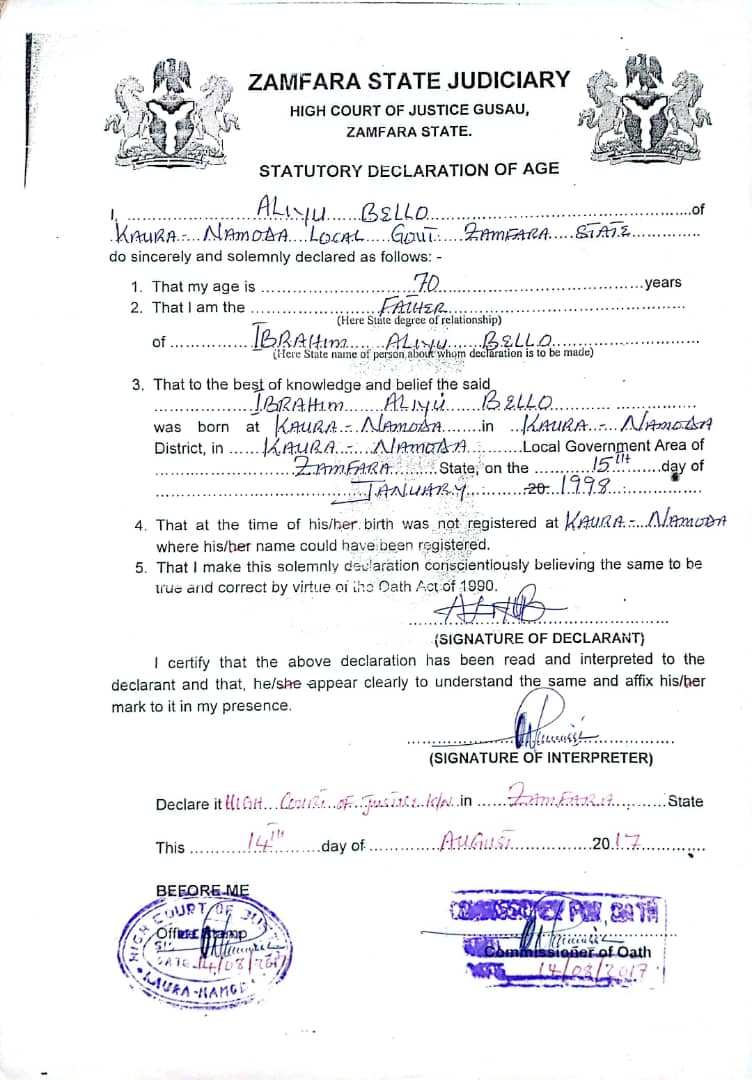 ZAMFARA STATE JUDICIARY
HIGH COURT OF JUSTICE GUSAU,
ZAMFARA STATE.
STATUTORY DECLARATION OF AGE
I, ........ ALIYU ...... BELLO ........ of
KAURA - NAMODA LOCAL GOVT. ZAMFARA STATE
do sincerely and solemnly declared as follows: -
1. That my age is ........ 70 ........ years
2. That I am the ........ FATHER ........
(Here State degree of relationship)
of ........ IBRAHIM ALIYU BELLO ........
(Here State name of person about whom declaration is to be made)
3. That to the best of knowledge and belief the said
........ IBRAHIM ALIYU BELLO ........
was born at KAURA - NAMODA ........ in ... KAURA - NAMODA
District, in ...... KAURA - NAMODA ........ Local Government Area of
........ ZAMFARA ........ State, on the ........ 15TH ...... day of
........ JANUARY ........ 20 1998 ........
4. That at the time of his/her birth was not registered at KAURA - NAMODA
where his/her name could have been registered.
5. That I make this solemnly declaration conscientiously believing the same to be
true and correct by virtue of the Oath Act of 1990.
(SIGNATURE OF DECLARANT)
I certify that the above declaration has been read and interpreted to the
declarant and that, he/she appear clearly to understand the same and affix his/her
mark to it in my presence.
(SIGNATURE OF INTERPRETER)
Declare it HIGH COURT OF JUSTICE K/N in ...... ZAMFARA ........ State
This ........ 14TH ........ day of ........ AUGUST ........ 2017 ........
BEFORE ME
HIGH COURT OF JUSTICE
Office Stamp
DATE 14/08/2017
KAURA-NAMODA
COMMISSIONER FOR OATH
Commissioner of Oath
14/08/2017